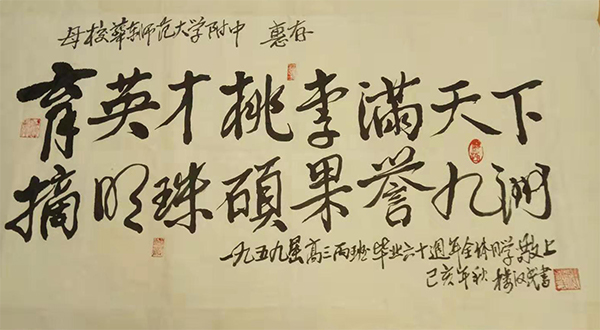 母校華东师范大学附中 惠存
育英才桃李滿天下
摘明珠碩果誉九洲
一九五九届高三丙班毕业六十週年全体同学敬上
己亥年秋 楼汉民書